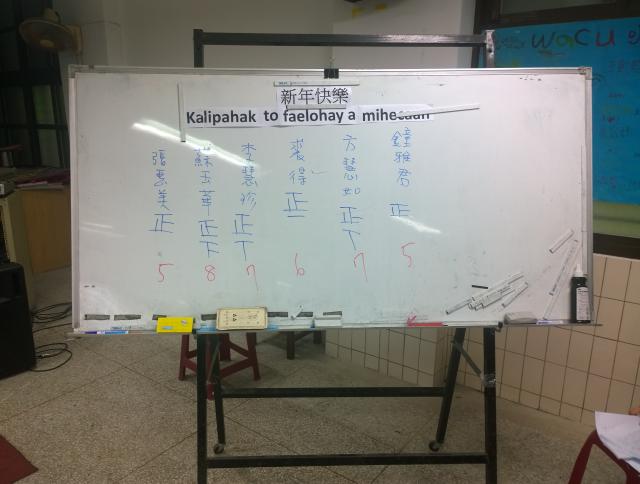 新年快樂
Kalipahak to faelohay a mihecaan
鐘雅君 正 5
方慧如 正丅 7
裘得 正一 6
李慧珍 正丅 7
蘇玉華 正下 8
張惠美 正 5
wacu